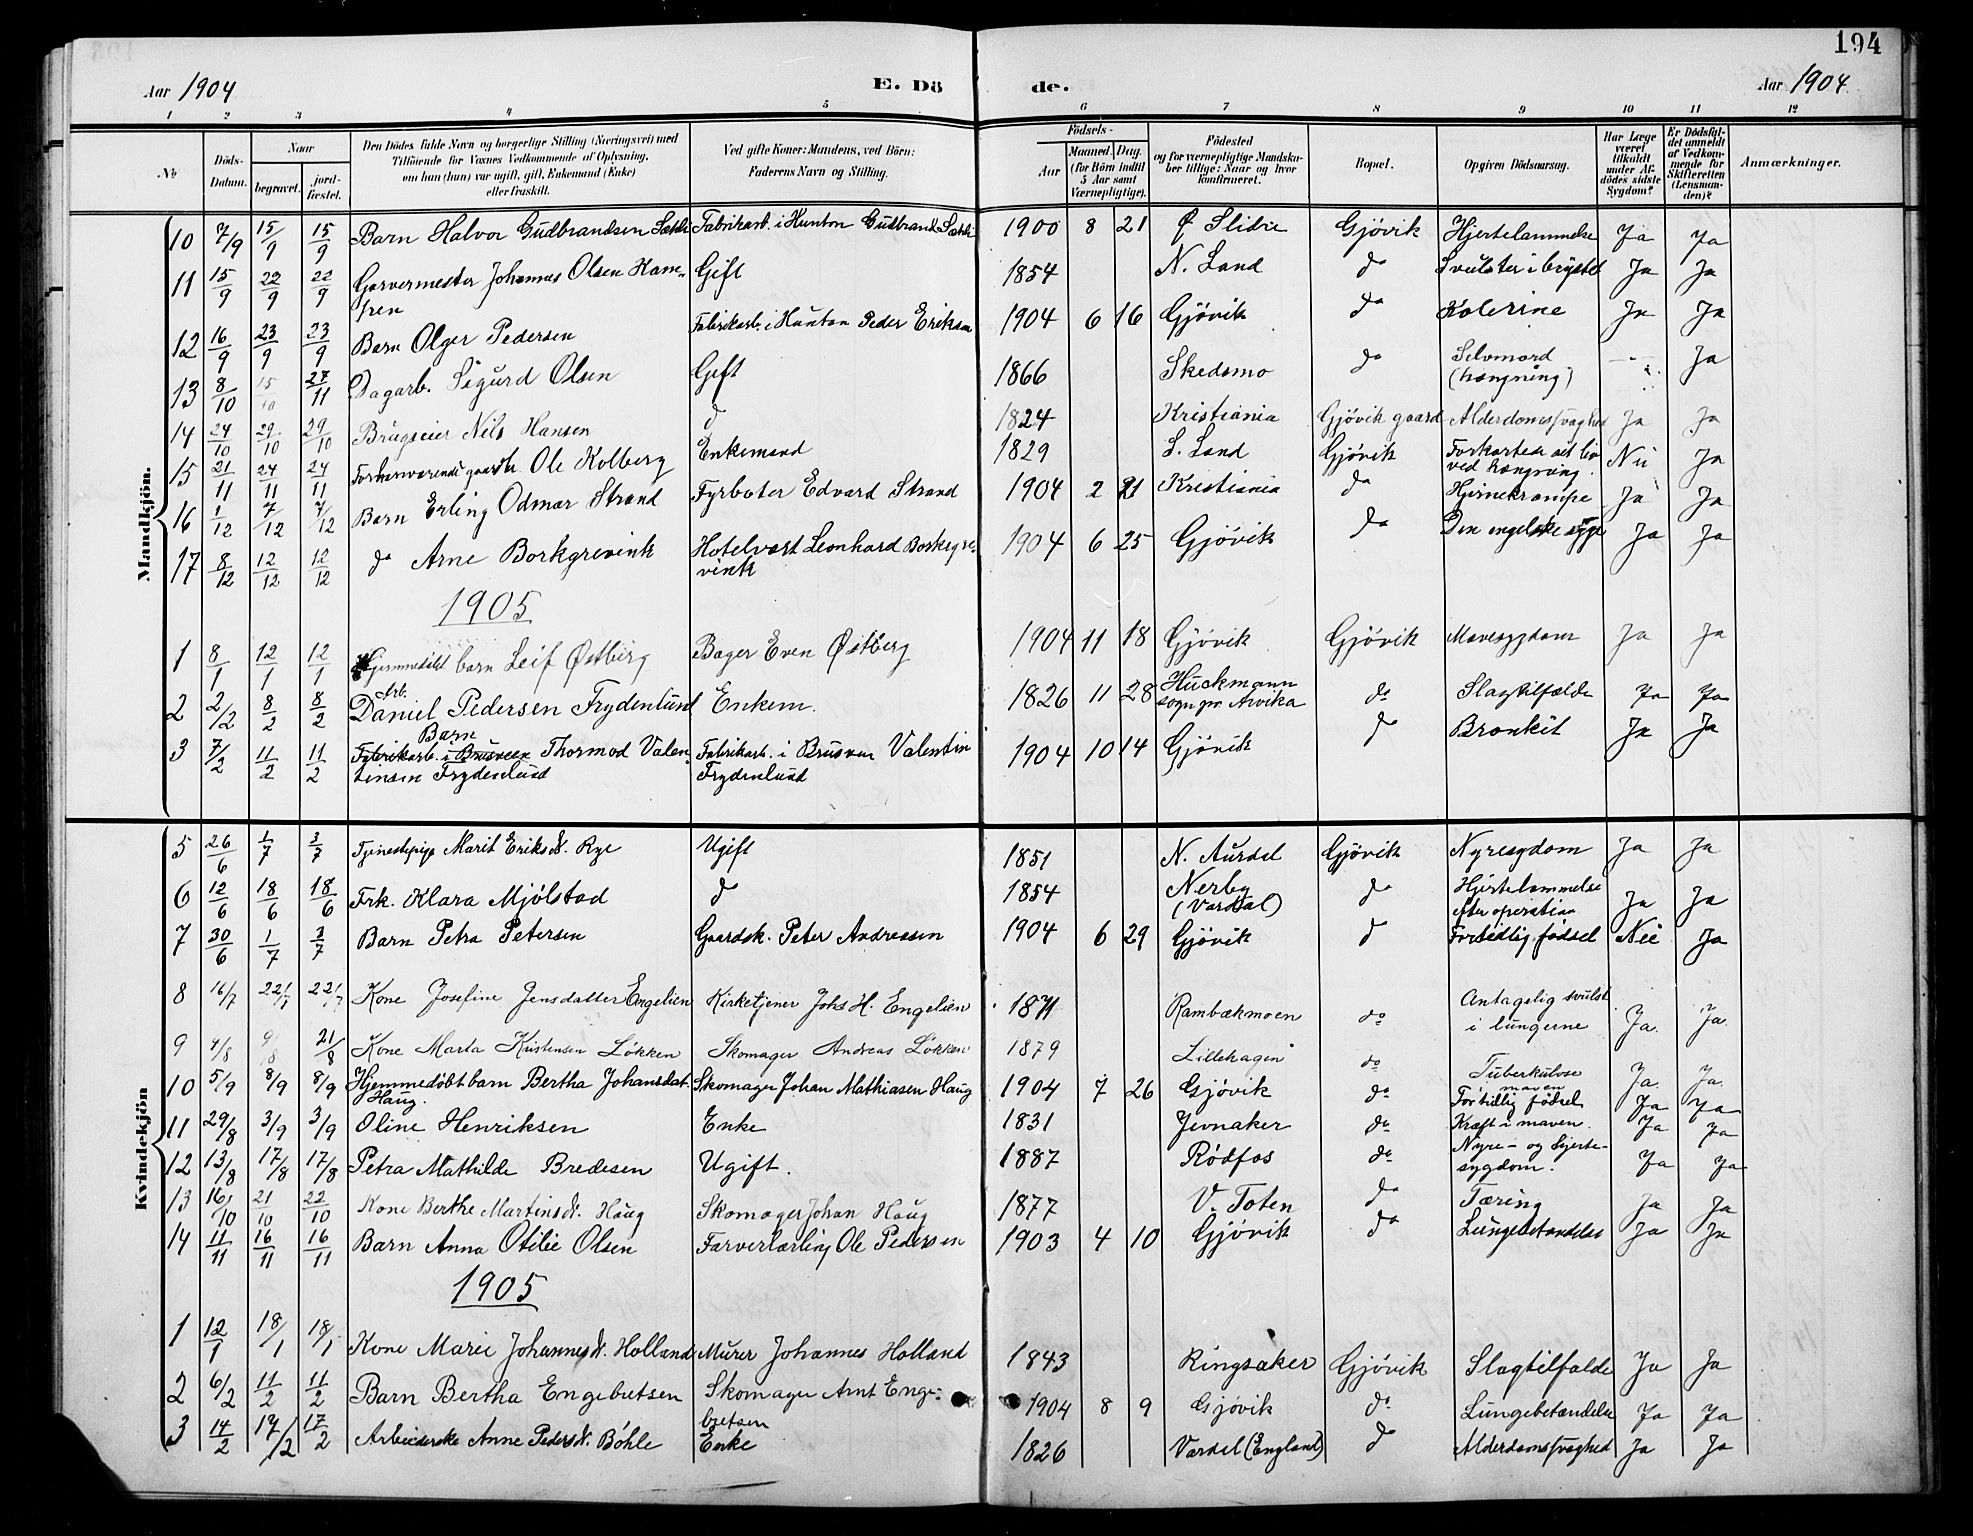 194
Aar 1904 E. Dö de. Aar 1904.
1 2 3 4 5 6 7 8 9 10 11 12
№ Döds-Datum. Naar begravet. jord-fæstet. Den Dödes fulde Navn og borgerlige Stilling (Næringsvei) med Tilföiende for Voxnes Vedkommende af Oplysning, om han (hun) var ugift, gift, Enkemand (Enke) eller fraskilt. Ved gifte Koner: Mandens, ved Börn: Faderens Navn og Stilling. Födsels- Aar Maaned. Dag. (for Börn indtil 5 Aar samt Værnepligtige). Födested og for værnepligtige Mandska-ber tillige: Naar og hvor konfirmeret. Bopæl. Opgiven Dödsaarsag. Har Læge været tilkaldt under Af-dödes sidste Sygdom? Er Dödsfal-det anmeldt af Vedkom-mende for Skifteretten (Lensman-den)? Anmærkninger.
Mandkjön.
10 7/9 15/9 15/9 Barn Halvor Gudbrandsen Sæhli Fabrikarb. i Hunton Gudbrand Sæhli 1900 8 21 Ø Slidre Gjövik Hjertelammelse Ja Ja
11 15/9 22/9 22/9 Garvermester Johannes Olsen Ham- Gift 1854 N. Land do Svulster i brystet Ja Ja
fren
12 16/9 23/9 23/9 Barn Olger Pedersen Fabrikarb. i Hunton Peder Eriksen 1904 6 16 Gjövik do Kolerine Ja Ja
13 8/10 15/10 27/11 Dagarb. Sigurd Olsen Gift 1866 Skedsmo do Selvmord (hængning) - - Ja
14 24/10 29/10 29/10 Brugseier Nils Hansen d 1824 Kristiania Gjövik gaard Alderdomssvaghed Ja Ja
15 21/11 24/11 24/11 Forhenværende gaardbr. Ole Kolberg Enkemand 1829 S. Land Gjövik Forkortede sit liv ved hængning. Nei Ja
16 1/12 7/12 7/12 Barn Erling Odmar Strand Fyrbøter Edvard Strand 1904 2 21 Kristiania do Hjernekrampe Ja Ja
17 8/12 12/12 12/12 do Arne Borkgrevink Hotelvært Leonhard Borkgre- 1904 6 25 Gjövik do Den engelske syge Ja Ja
vink
1905
1 8/1 12/1 12/1 Hjemmedöbt barn Leif Østberg Bager Even Østberg 1904 11 18 Gjövik Gjövik Mavesygdom Ja Ja
2 2/2 8/2 8/2 Arb. Daniel Pedersen Frydenlund Enkem. 1826 11 28 Huckmann sogn pr. Arvika do Slagtilfælde Ja Ja
3 7/2 11/2 11/2 Fabrikarb. i Brusveen Barn Thormod Valen- Fabrikarb. i Brusveen Valentin 1904 10 14 Gjövik do Bronkit Ja Ja
tinsen Frydenlund Frydenlund
Kvindekjön
5 26/6 1/7 3/7 Tjenestepige Marit Eriksdt. Rye Ugift 1851 N. Aurdal Gjövik Nyresygdom Ja Ja
6 12/6 18/6 18/6 Frk. Klara Mjölstad d 1854 Nerby (Vardal) do Hjertelammelse efter operation Ja Ja
7 30/6 1/7 3/7 Barn Petra Petersen Gaardsk. Peter Andreasen 1904 6 29 Gjövik d Fortidlig födsel Nei Ja
8 16/7 22/7 22/7 Kone Josefine Jensdatter Engelien Kirketjener Johs H. Engelien 1871 Rambækmoen do Antagelig svulst i lungerne Ja. Ja.
9 4/8 9/8 21/8 Kone Marta Kristensen Løkken Skomager Andreas Løkken 1879 Lillehagen do Tuberkulose Ja. Ja.
10 5/9 8/9 8/9 Hjemmedöbt barn Bertha Johansdat. Skomager Johan Mathiasen Haug 1904 7 26 Gjövik do Fortidlig födsel Ja Ja
Haug.
11 29/8 3/9 3/9 Oline Henriksen Enke 1831 Jevnaker do Kræft i maven. Ja Ja
12 13/8 17/8 17/8 Petra Mathilde Bredesen Ugift. 1887 Rødfos do Nyre- og hjerte-sygdom. Ja Ja
13 16/10 21/10 22/10 Kone Berthe Martinsdt. Haug Skomager Johan Haug 1877 V. Toten do Tæring Ja Ja
14 11/11 16/11 16/11 Barn Anna Otilie Olsen Farverlærling Ole Pedersen 1903 4 10 Gjövik do Lungebetændelse Ja Ja
1905
1 12/1 18/1 18/1 Kone Marie Johannesdt. Holland Murer Johannes Holland 1843 Ringsaker Gjövik Slagtilfælde Ja Ja
2 6/2 11/2 11/2 Barn Bertha Engebretsen Skomager Arnt Enge- 1904 8 9 Gjövik do Lungebetændelse Ja Ja
bretsen
3 14/2 17/2 17/2 Arbeiderske Anne Pedersdt. Böhle Enke 1826 Vardal (England) do Alderdomssvaghed Ja Ja